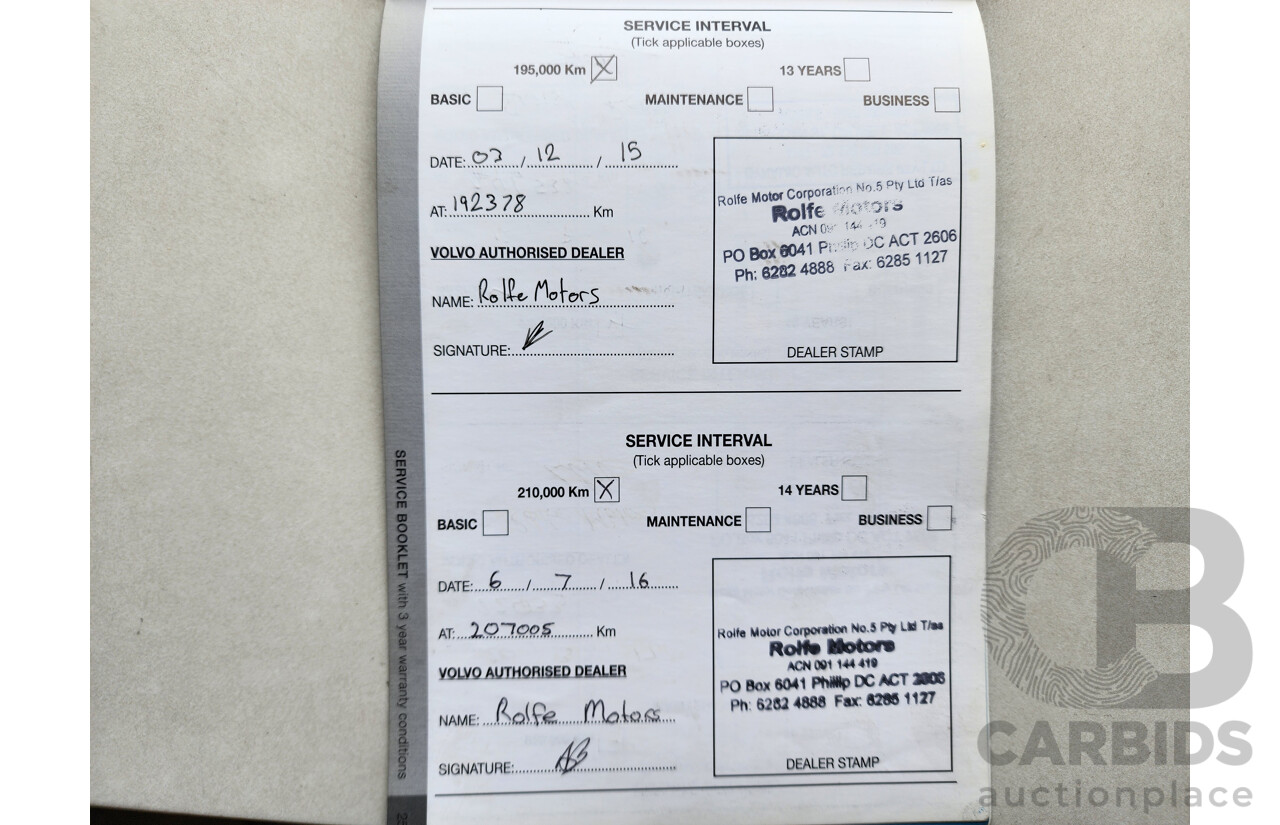 SERVICE INTERVAL
(Tick applicable boxes)
195,000 Km X 13 YEARS
BASIC MAINTENANCE BUSINESS
DATE: 03 / 12 / 15
AT: 192378 Km
VOLVO AUTHORISED DEALER
NAME: Rolfe Motors
SIGNATURE:
Rolfe Motor Corporation No.5 Pty Ltd T/as
Rolfe Motors
ACN 091 144 419
PO Box 6041 Phillip DC ACT 2606
Ph: 6282 4888 Fax: 6285 1127
DEALER STAMP
SERVICE INTERVAL
(Tick applicable boxes)
210,000 Km X 14 YEARS
BASIC MAINTENANCE BUSINESS
DATE: 6 / 7 / 16
AT: 207005 Km
VOLVO AUTHORISED DEALER
NAME: Rolfe Motors
SIGNATURE: AB
Rolfe Motor Corporation No.5 Pty Ltd T/as
Rolfe Motors
ACN 091 144 419
PO Box 6041 Phillip DC ACT 2606
Ph: 6282 4888 Fax: 6285 1127
DEALER STAMP
SERVICE BOOKLET with 3 year warranty conditions
CARBIDS
auctionplace